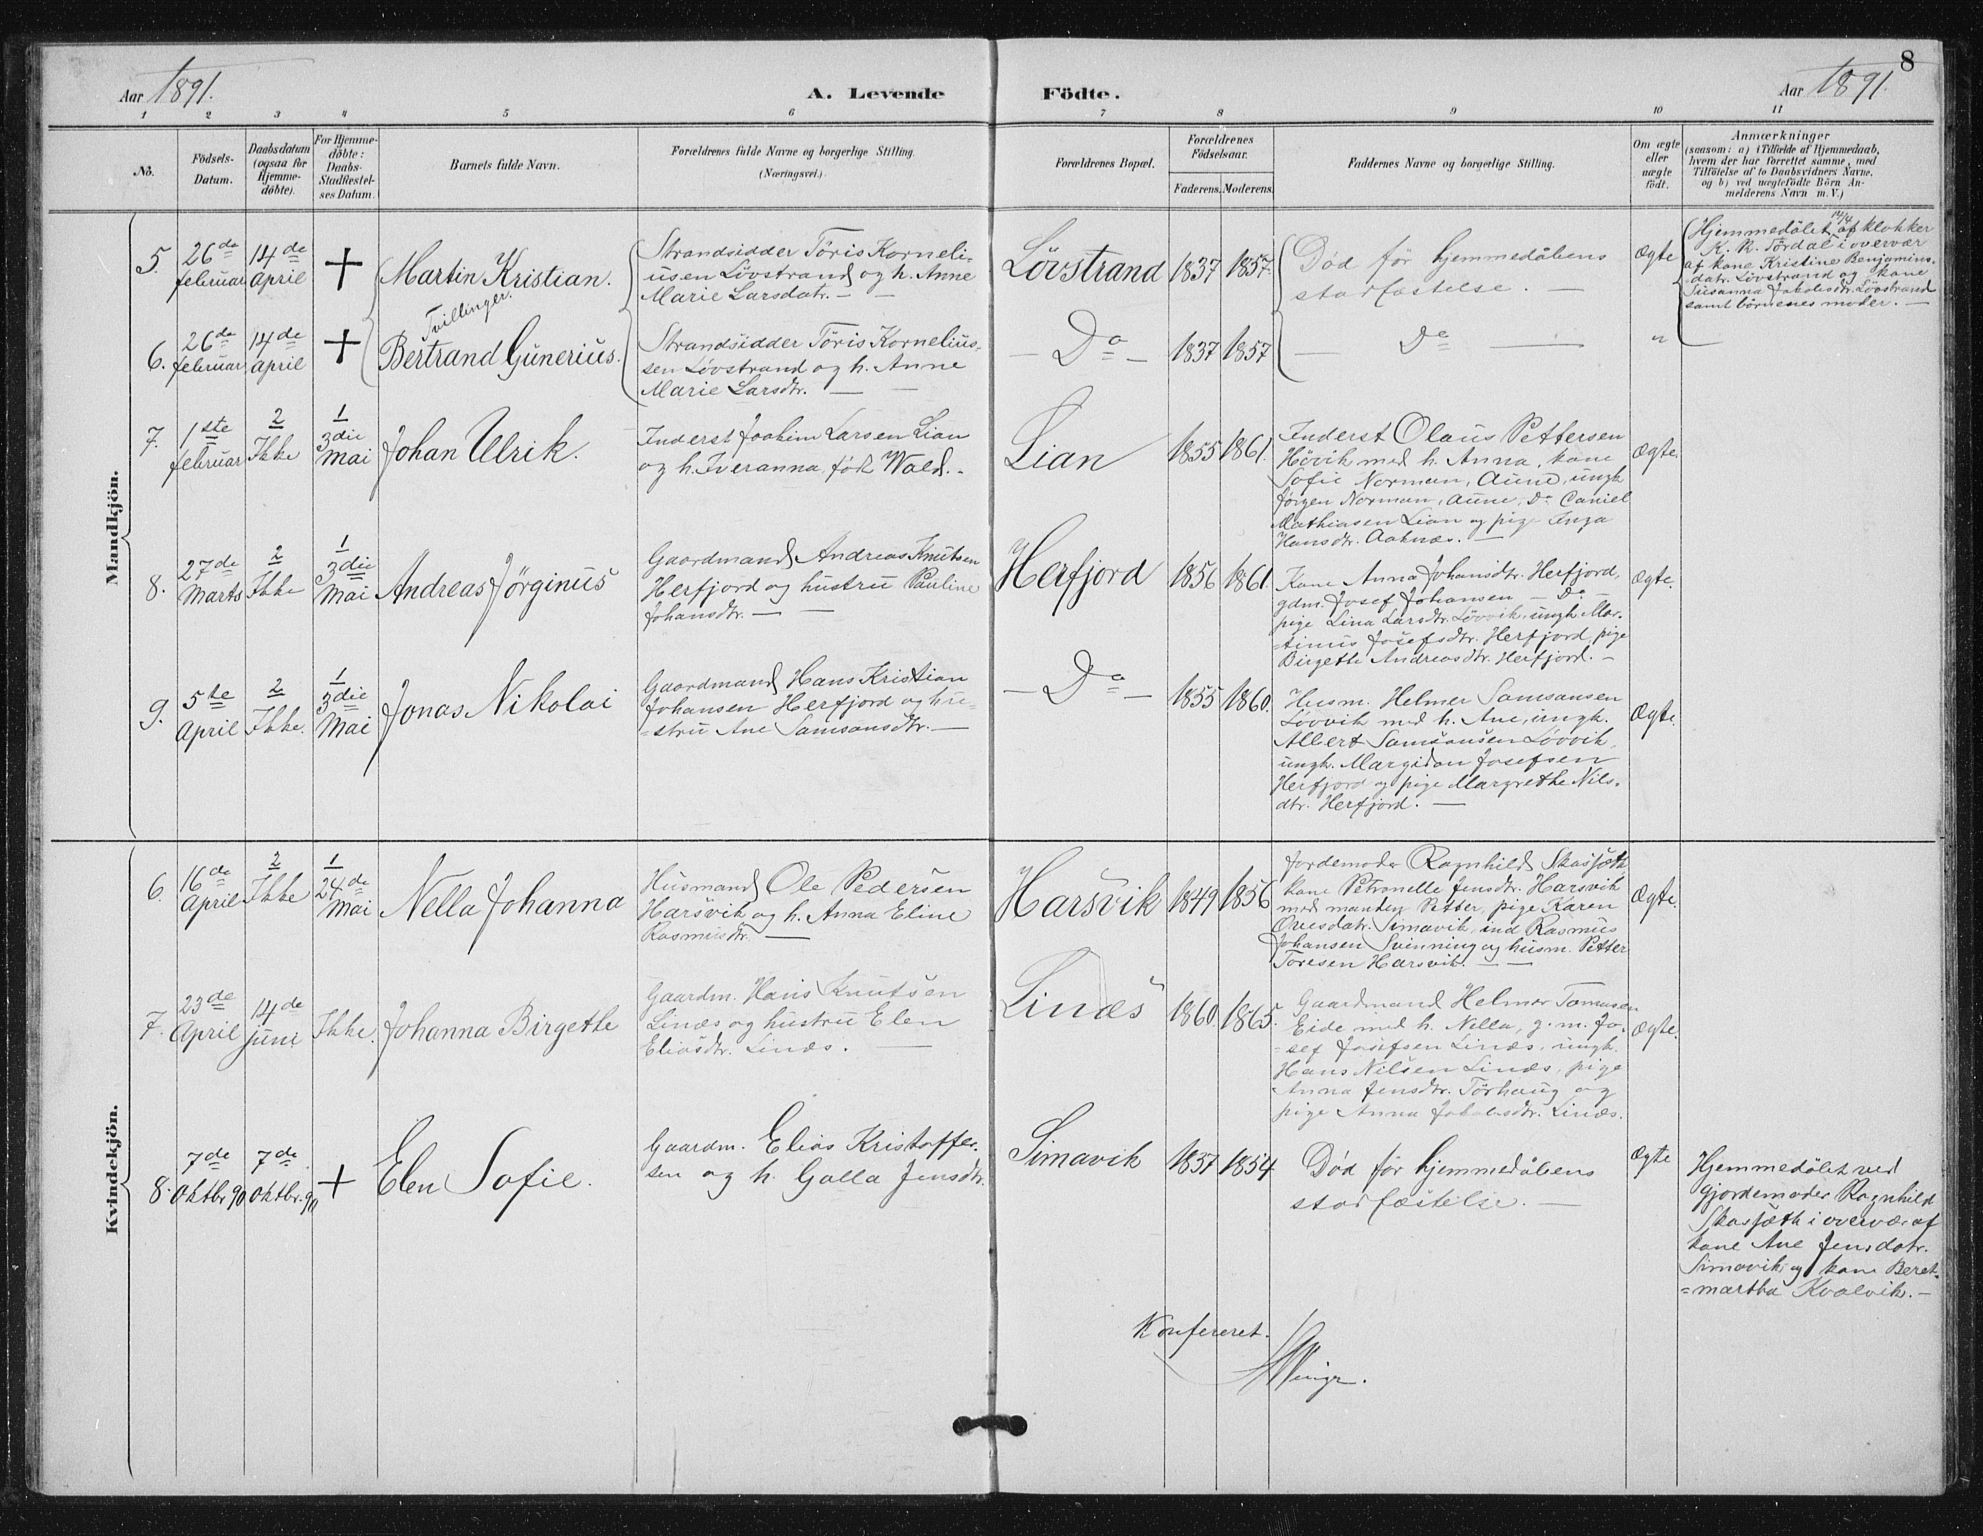 8
Aar 1891.
A. Levende Födte.
Aar 1891.
1 2 3 4 5 6 7 8 9 10 11
No.
Födsels-
Datum.
Daabsdatum
(ogsaa for
Hjemme-
döbte).
For Hjemme-
döbte:
Daabs-
Stadfæstel-
ses Datum.
Barnets fulde Navn.
Forældrenes fulde Navne og borgerlige Stilling.
(Næringsvei.)
Forældrenes Bopæl.
Forældrenes
Födselsaar.
Faderens. Moderens.
Faddernes Navne og borgerlige Stilling.
Om ægte
eller
uægte
födt.
Anmærkninger
(saasom: a) i Tilfælde af Hjemmedaab,
hvem der har forrettet samme, med
Tilföielse af to Daabsvidners Navne,
og b) ved uægtefödte Börn An-
melderens Navn m. V.)
Mandkjön.
5.
26de
februar
14de
April
+
Martin Kristian.
Tvillinger.
Strandsidder Töris Korneli-
usen Lövstrand og h. Anne
Marie Larsdatr. —
Lövstrand
1837 1857.
Död før hjemmedåbens
stadfæstelse. —
Ægte
Hjemmedöbt 14/4 af klokker
K. K. Tördal i overvær
af kone Kristine Benjamins-
datr. Lövstrand og kone
Susanna Jakobsdtr. Lövstrand
samt börnenes moder. —
6.
26de
februar
14de
April
+
Bertrand Gunerius.
Strandsidder Töris Kornelius-
sen Lövstrand og h. Anne
Marie Larsdtr. —
— Do —
1837 1857
— Do —
"
7.
1ste
februar
2
Ikke
1
3die
Mai
Johan Ulrik.
Inderst Joakim Larsen Lian
og h. Iveranna, föt Wold. -
Lian
1855 1861.
Inderst Olaus Pettersen
Hövik med h. Anna, kone
Sofie Norman, Aune, ungk.
Jörgen Norman, Aune, Do Daniel
Mathiasen Lian og pige Inga
Hansdtr. Aaknæs. —
Ægte.
8.
27de
Marts
2
Ikke
1
3die
Mai
Andreas Jörginus
Gaardmand Andreas Knutsen
Herfjord og hustru Pauline
Johansdtr. —
Herfjord
1856 1861.
Kone Anna Johansdtr. Herfjord,
gdm. Josef Johansen — Do —
pige Lina Larsdtr. Lövvik, ungk. Mar-
tinus Josefsdtr. Herfjord, pige
Birgette Andreasdtr. Herfjord. —
Ægte.
9.
5te
April
2
Ikke.
1
3die
Mai
Jonas Nikolai
Gaardmand Hans Kristian
Johansen Herfjord og hu-
=stru Ane Samsonsdtr. —
— Do —
1855 1860.
Husm. Helmer Samsonsen
Lövvik med h. Ane, ungk.
Albert Samsonsen Lövvik,
ungk. Margidon Josefsen
Herfjord og pige Margrethe Nils-
dtr. Herfjord. —
Ægte.
Kvindekjön.
6.
16de
April
2
Ikke
1
24de
Mai
Nella Johanna
Husmand Ole Pedersen
Harsvik og h. Anna Eline
Rasmusdtr. —
Harsvik
1849 1856
Jordemoder Ragnhild Skasjæth
kone Petronelle Jensdtr. Harsvik
med manden Petter, pige Karen
Ovesdatr. Simavik, ind Rasmus
Johansen Svinning og husm. Petter
Toresen Harsvik. —
Ægte.
7.
23de
April
14de
Juni
Ikke.
Johanna Birgette
Gaardm. Hans Knutsen
Linæs og hustru Elen
Eliasdtr. Linæs. —
Linæs
1860. 1865.
Gaardmand Helmer Tomasen
Eide med h. Nella, g. m. Jo-
=sef Josefsen Linæs, ungk.
Hans Nilsen Linæs, pige
Anna Jensdtr. Törhaug og
pige Anna Jakobsdtr. Linæs.
Ægte.
8.
7de
Oktbr 90
7de
Oktbr. 90
+
Elen Sofie.
Gaardm. Elias Kristoffer-
sen og h. Golla Jensdtr.
Simavik
1857 1854
Död før hjemmedåbens
stadfæstelse. —
Ægte
Hjemmedöbt ved
gjordemoder Ragnhild
Skasjæth i overvær af
kone Ane Jensdatr.
Simavik og kone Beret-
=martha Kvalvik. —
Konfereret.